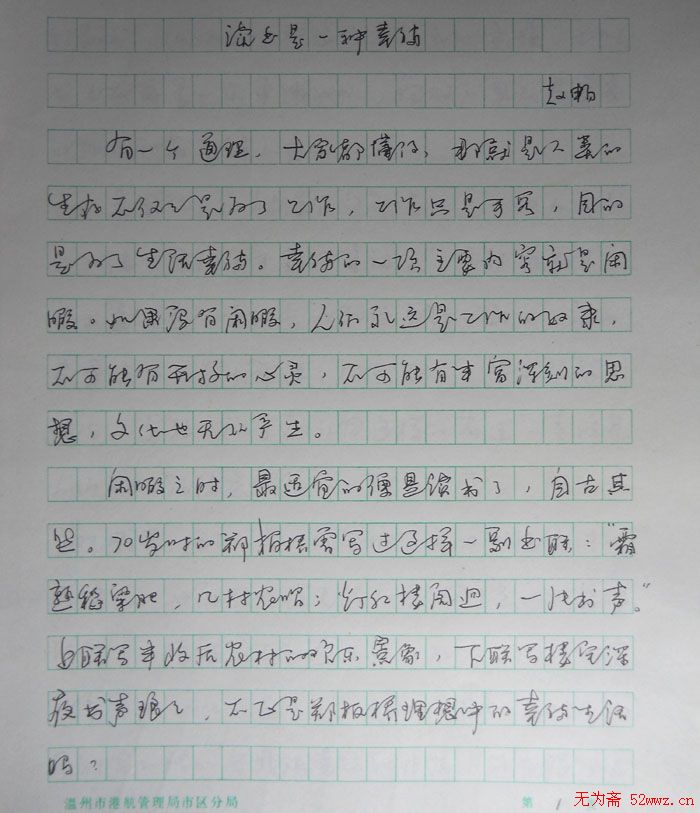 读书是一种素养
赵畅
有一个道理，大家都懂得，那就是人类的
生存不仅仅是为了工作，工作只是手段，目的
是为了生活素养。素养的一项主要内容就是闲
暇。如果没有闲暇，人们永远是工作的奴隶，
不可能有美好的心灵，不可能有丰富深刻的思
想，文化也无从产生。
闲暇之时，最适宜的便是读书了，自古其
然。70岁时的郑板桥曾写过这样一副对联：“霜
熟稻粱肥，几村农唱；灯红楼阁迥，一片书声。”
上联写丰收后农村的欢乐景象，下联写楼宅深
夜书声琅琅，不正是郑板桥理想中的素养生活
吗？
温州市港航管理局市区分局 第 1
无为斋 52wwz.cn